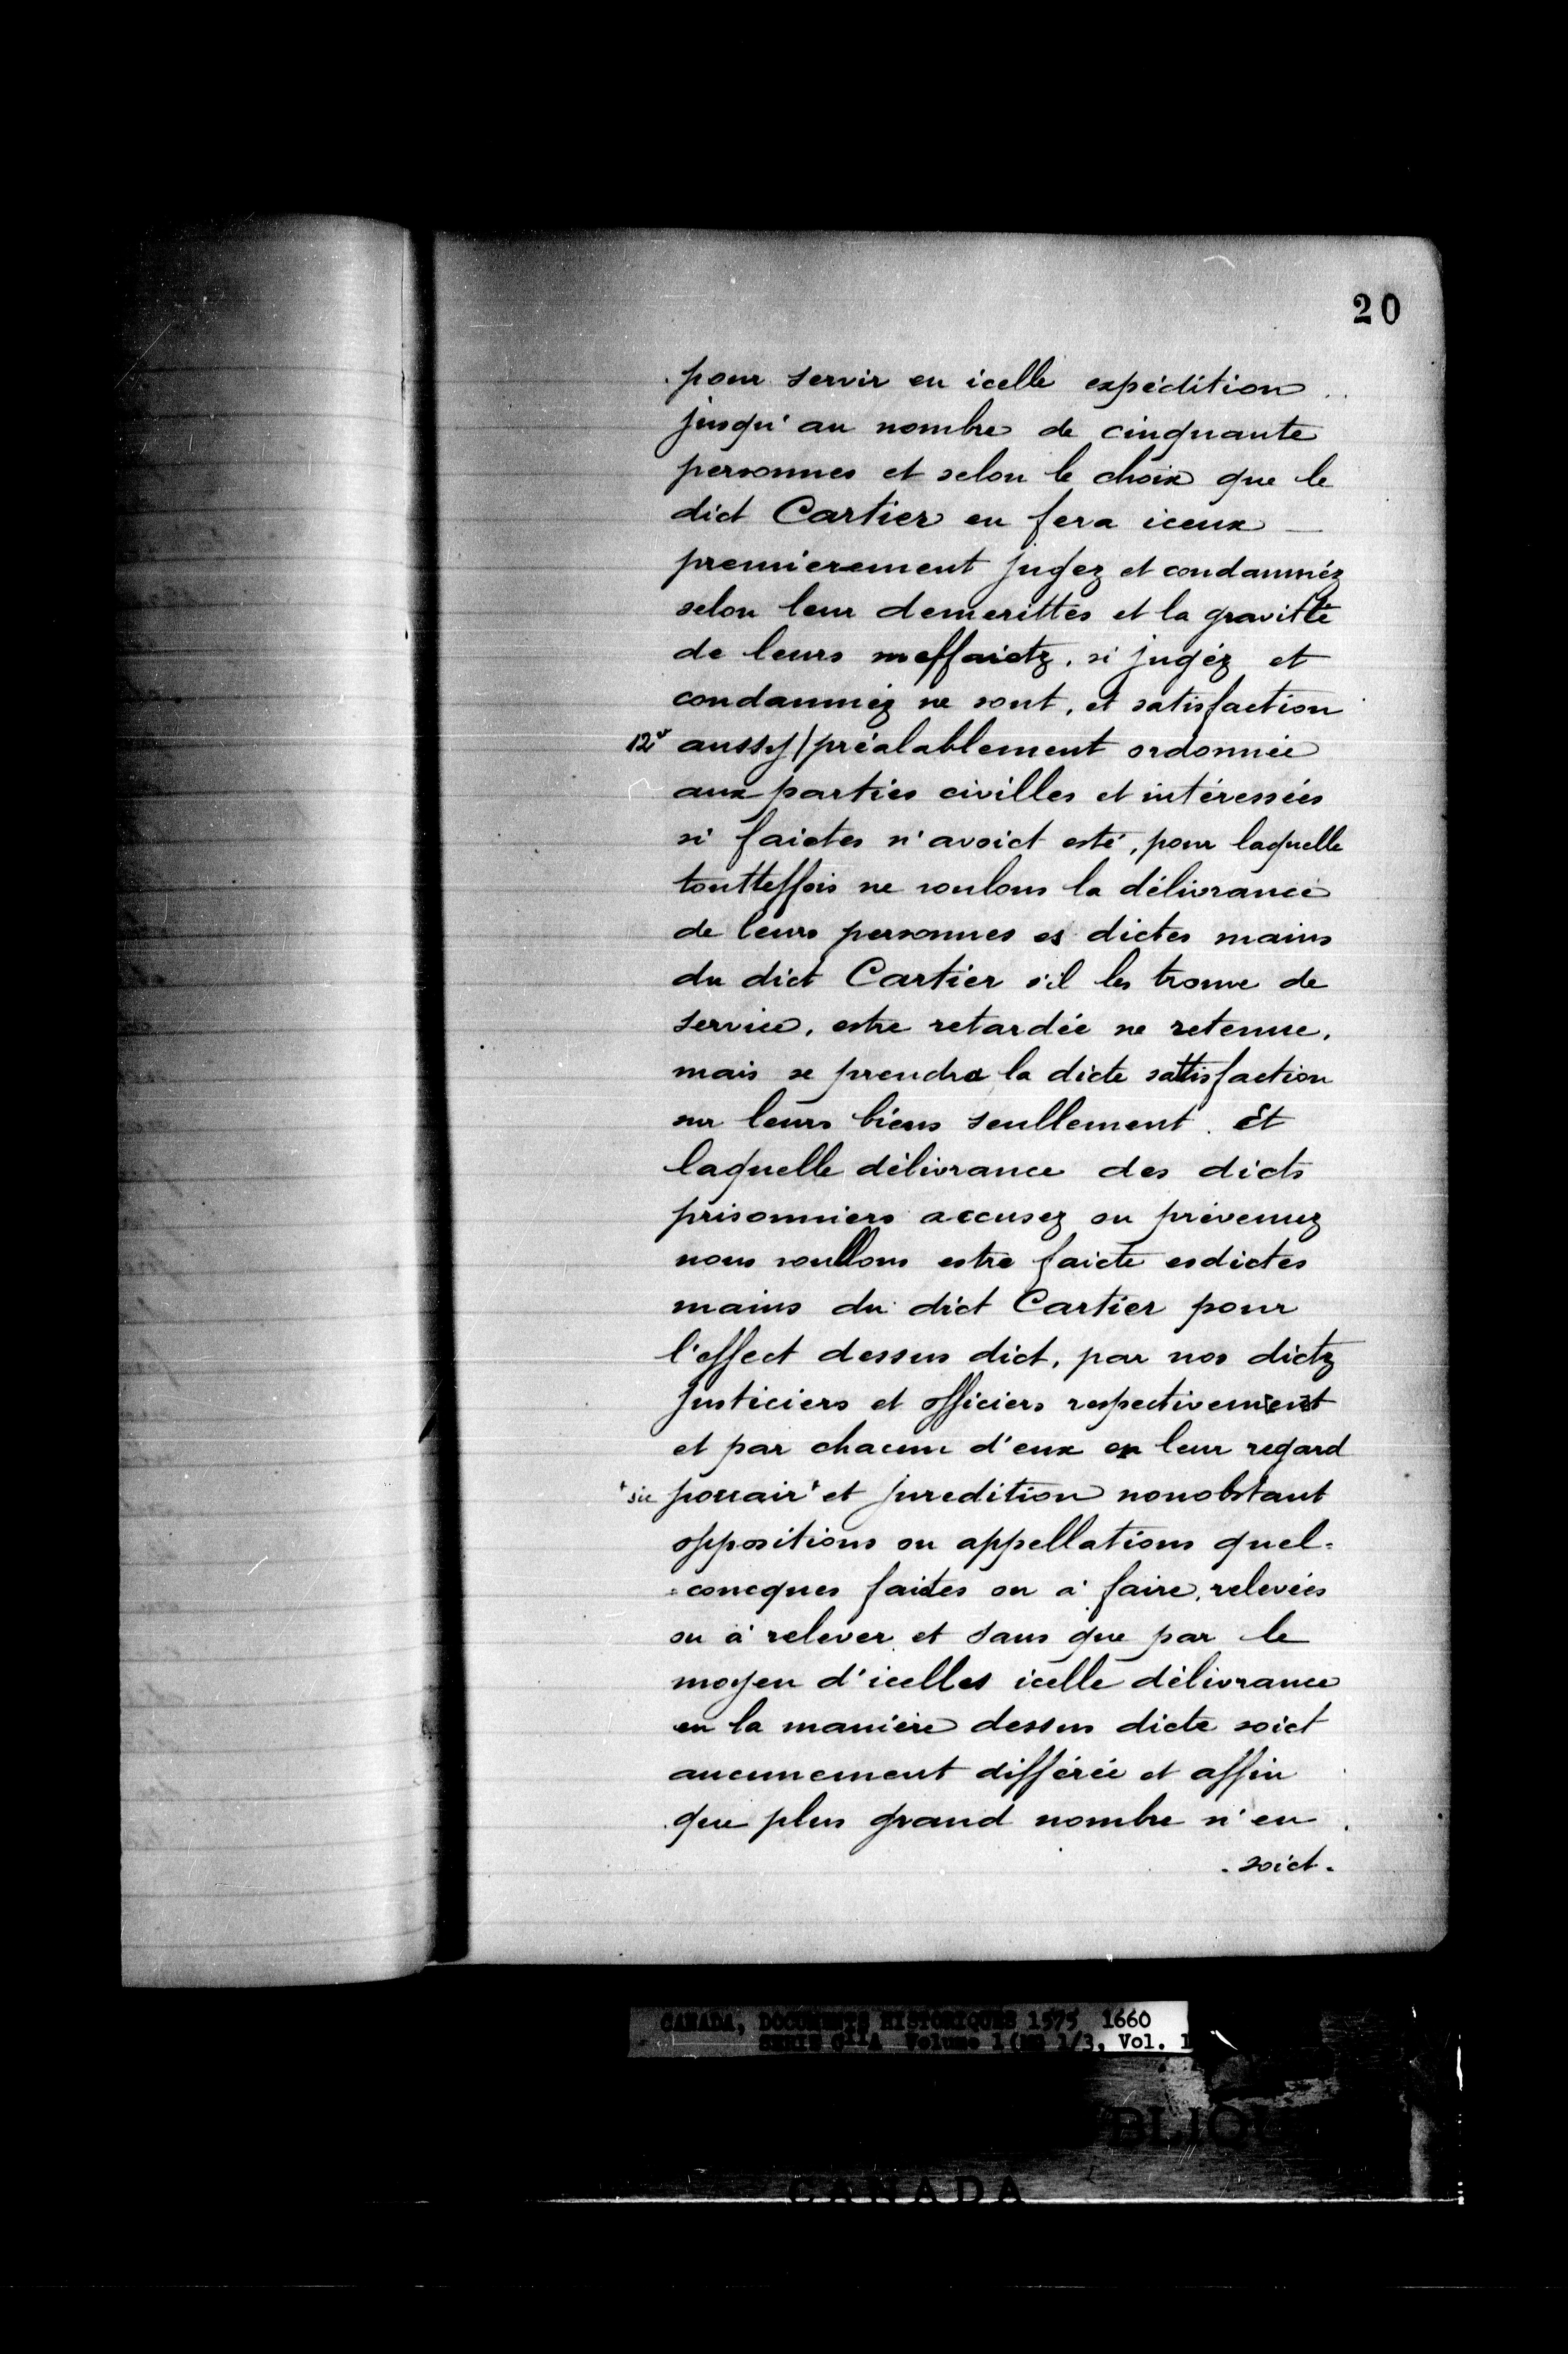 20
pour servir en icelle expédition
jusqu'au nombre de cinquante
personnes et selon le choix que le
dict Cartier en fera iceux
premierement jugez et condamnéz
selon leur demerittes et la gravitté
de leurs meffaictz, si jugéz et
condamnéz ne sont, et satisfaction
12v aussy/préalablement ordonnée
aux parties civilles et intéressées
si faictes n'avoict esté, pour laquelle
touttesfois ne voulons la délivrance
de leurs personnes es dictes mains
du dict Cartier s'il les trouve de
service, estre retardée ne retenue,
mais se prendra la dicte sattisfaction
sur leurs biens seullement. Et
laquelle délivrance des dicts
prisonniers accusez ou prévenuz
nous voullons estre faicte esdictes
mains du dict Cartier pour
l'effect dessus dict, par nos dictz
Justiciers et officiers respectivement
et par chacun d'eux en leur regard
+sic pouair+ et juredition nonobstant
oppositions ou appellations quel=
=concques faictes ou à faire, relevées
ou à relever et sans que par le
moyen d'icelles icelle délivrance
en la manière dessus dicte soict
aucunement différée et affin
que plus grand nombre n'en
. soict .
CANADA, DOCUMENTS HISTORIQUES 1575 1660
SERIE C11A Volume 1(MG 1/3, Vol. 1
CANADA